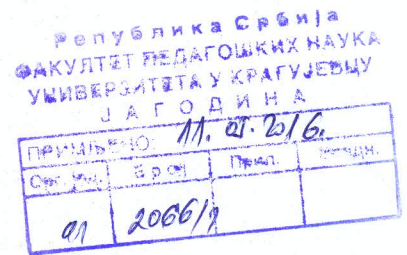 Република Србија
ФАКУЛТЕТ ПЕДАГОШКИХ НАУКА
УНИВЕРЗИТЕТА У КРАГУЈЕВЦУ
ЈАГОДИНА
ПРИМЉЕНО: 11. 2016.
Орг. јед. Број Прил.
01 2066/1